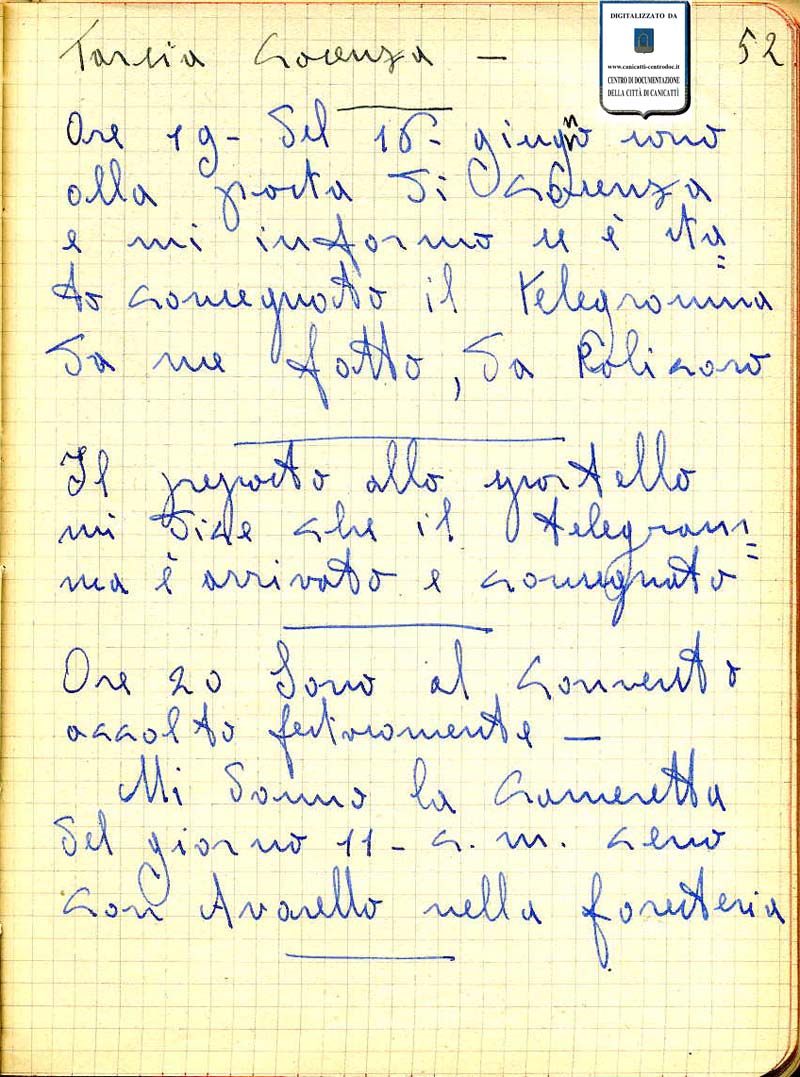 DIGITALIZZATO DA
www.canicatti-centrodoc.it
CENTRO DI DOCUMENTAZIONE
DELLA CITTÀ DI CANICATTÌ
Tarsia Cosenza — 52
Ore 19 - del 16 - giugno sono
alla posta di Cosenza
e mi informo se è sta=
to consegnato il telegramma
da me fatto, da Policoro
Il preposto allo sportello
mi dice che il telegram=
ma è arrivato e consegnato
Ore 20 Sono al convento
accolto festosamente —
Mi danno la cameretta
del giorno 11 - c. m. ceno
con Avarello nella foresteria